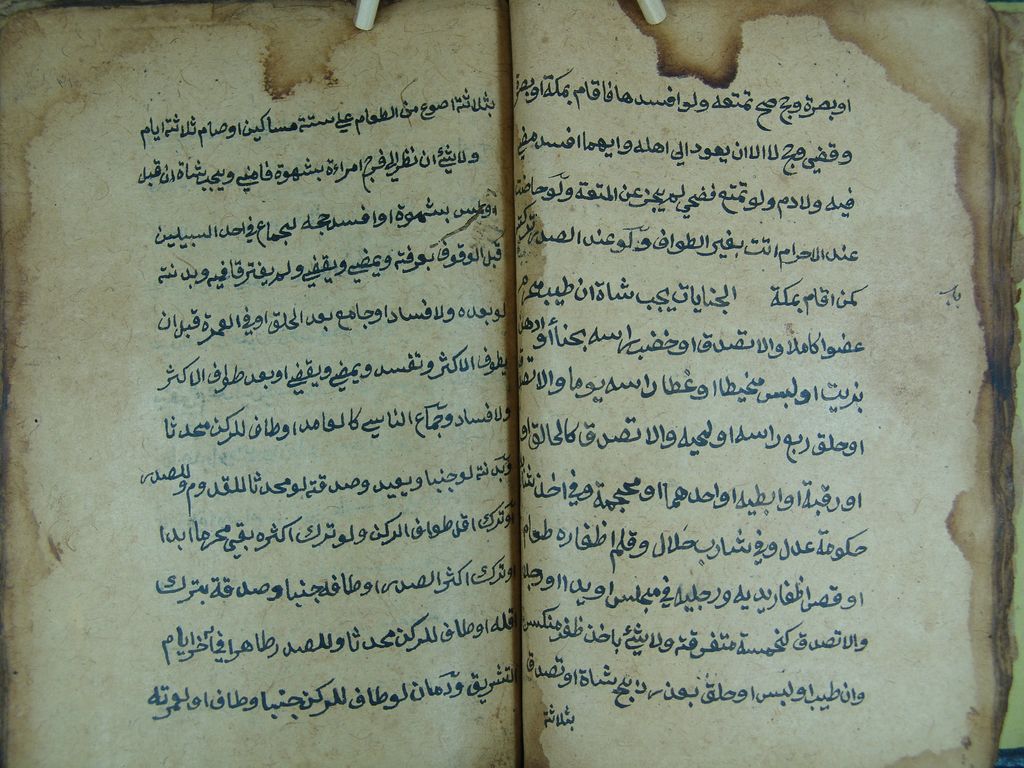 او بصرة وحج صح تمتعه ولو افسدها فاقام بمكة او بصرة
وقضي وحج لا الا ان يعود الي اهله وايهما افسد مضي
فيه ولا دم ولو تمتع فضحي لم يجز عن المتعة ولو حاضت
عند الاحرام اتت بغير الطواف ولو عند الصدر تركته
كمن اقام بمكة الجنايات يجب شاة ان طيب محرم
باب
عضوا كاملا والا تصدق او خضب راسه بحناء او ادهن
بزيت او لبس مخيطا او غطا راسه يوما والا تصدق
او حلق ربع راسه او لحيته والا تصدق كالحالق او
او رقبة او ابطيه او احدهما او محجمة وفي اخذ شاربه
حكومة عدل وفي شارب حلال وقلم اظفاره طعام
او قص اظفار يديه ورجليه في مجلس او يدا او رجلا
والا تصدق كخمسة متفرقة ولا شئ باخذ ظفر منكسر
وان طيب او لبس او حلق بعذر ذبح شاة او تصدق
بثلاثة
بثلاثة اصوع من الطعام علي ستة مساكين او صام ثلاثة ايام
ولا شئ ان نظر الي فرج امراءة بشهوة فامني ويجب شاة ان قبل
او لمس بشهوة او افسد حجه بجماع في احد السبيلين
قبل الوقوف بعرفة ويمضي ويقضي ولم يفترقا فيه وبدنة
لو بعده ولا فساد او جامع بعد الحلق او في العمرة قبل ان
يطوف الاكثر وتفسد ويمضي ويقضي او بعد طواف الاكثر
ولا فساد وجماع الناسي كالعامد او طاف للركن محدثا
وبدنة لو جنبا ويعيد وصدقة لو محدثا للقدوم وللصدر
او ترك اقل طواف الركن ولو ترك اكثره بقي محرما ابدا
او ترك اكثر الصدر او طافه جنبا وصدقة بترك
اقله او طاف للركن محدثا وللصدر طاهرا في آخر ايام
التشريق ودمان لو طاف للركن جنبا وطاف او لعمرته